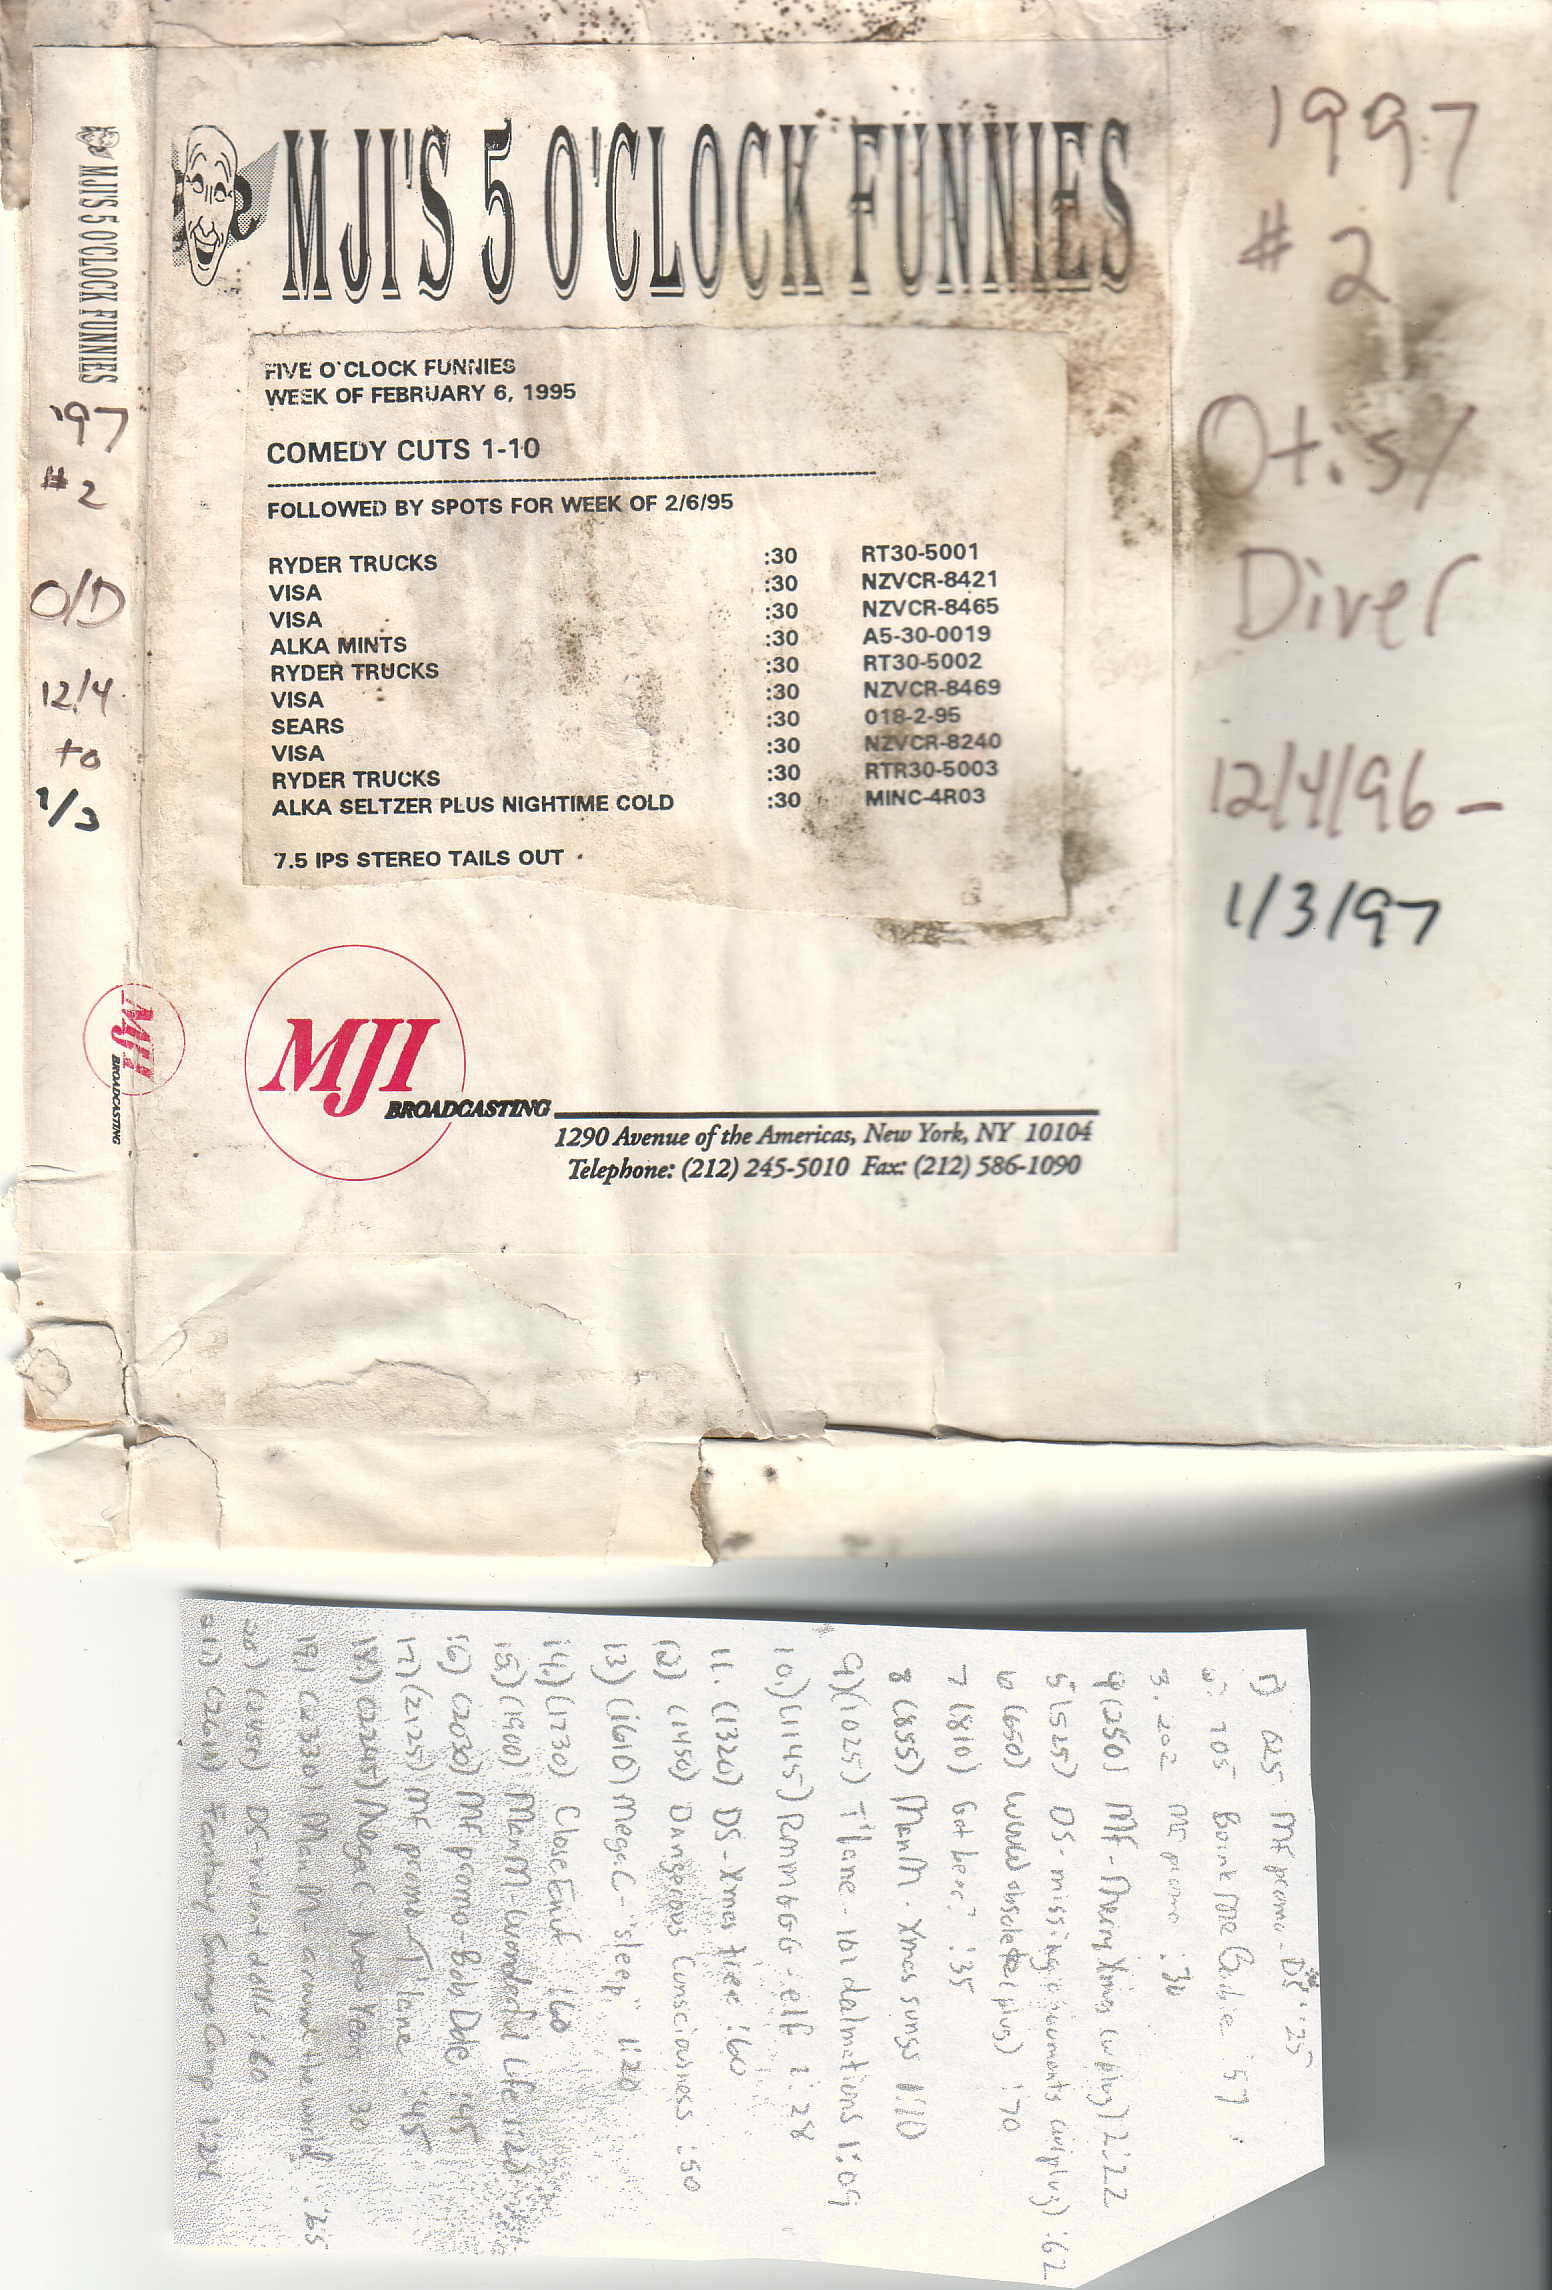 MJI'S 5 O'CLOCK FUNNIES
'97
#2
O/D
12/4
to
1/3
MJI
BROADCASTING
MJI'S 5 O'CLOCK FUNNIES
FIVE O'CLOCK FUNNIES
WEEK OF FEBRUARY 6, 1995
COMEDY CUTS 1-10
FOLLOWED BY SPOTS FOR WEEK OF 2/6/95
RYDER TRUCKS :30 RT30-5001
VISA :30 NZVCR-8421
VISA :30 NZVCR-8465
ALKA MINTS :30 A5-30-0019
RYDER TRUCKS :30 RT30-5002
VISA :30 NZVCR-8469
SEARS :30 018-2-95
VISA :30 NZVCR-8240
RYDER TRUCKS :30 RTR30-5003
ALKA SELTZER PLUS NIGHTIME COLD :30 MINC-4R03
7.5 IPS STEREO TAILS OUT
MJI
BROADCASTING
1290 Avenue of the Americas, New York, NY 10104
Telephone: (212) 245-5010 Fax: (212) 586-1090
1997
#2
Otis/
Diver
12/4/96-
1/3/97
1) 025 MF promo-DS :25
105 Boink
3. 202 MF promo :30
4 (250) MF-Merry Xmas (w/plug) 2:22
5 (525) DS-missing ornaments (w/plug) :62
6 (650) WWW obsolete (plug) :70
7 (810) Got beer? :35
8 (855) ManM-Xmas songs 1:10
9) (1025) T'lane-101 dalmations 1:09
10.) (1145) RMMBGG-elf 1:28
11. (1320) DS-Xmas tree :60
12) (1450) Dangerous Consciousness :50
13) (1610) MegaC-"sleep" 1:20
14.) (1730) Close Enuf :60
15.) (1900) ManM-wonderful Life 1:20
16) (2030) MF promo-Bob Dole :45
17) (2125) MF promo-T'lane :45
18.) (2245) MegaC New Year
19) (2330) ManM-around the world :65
20.) DS-rodent dolls :60
21.) Fantasy Savage Camp 1:24